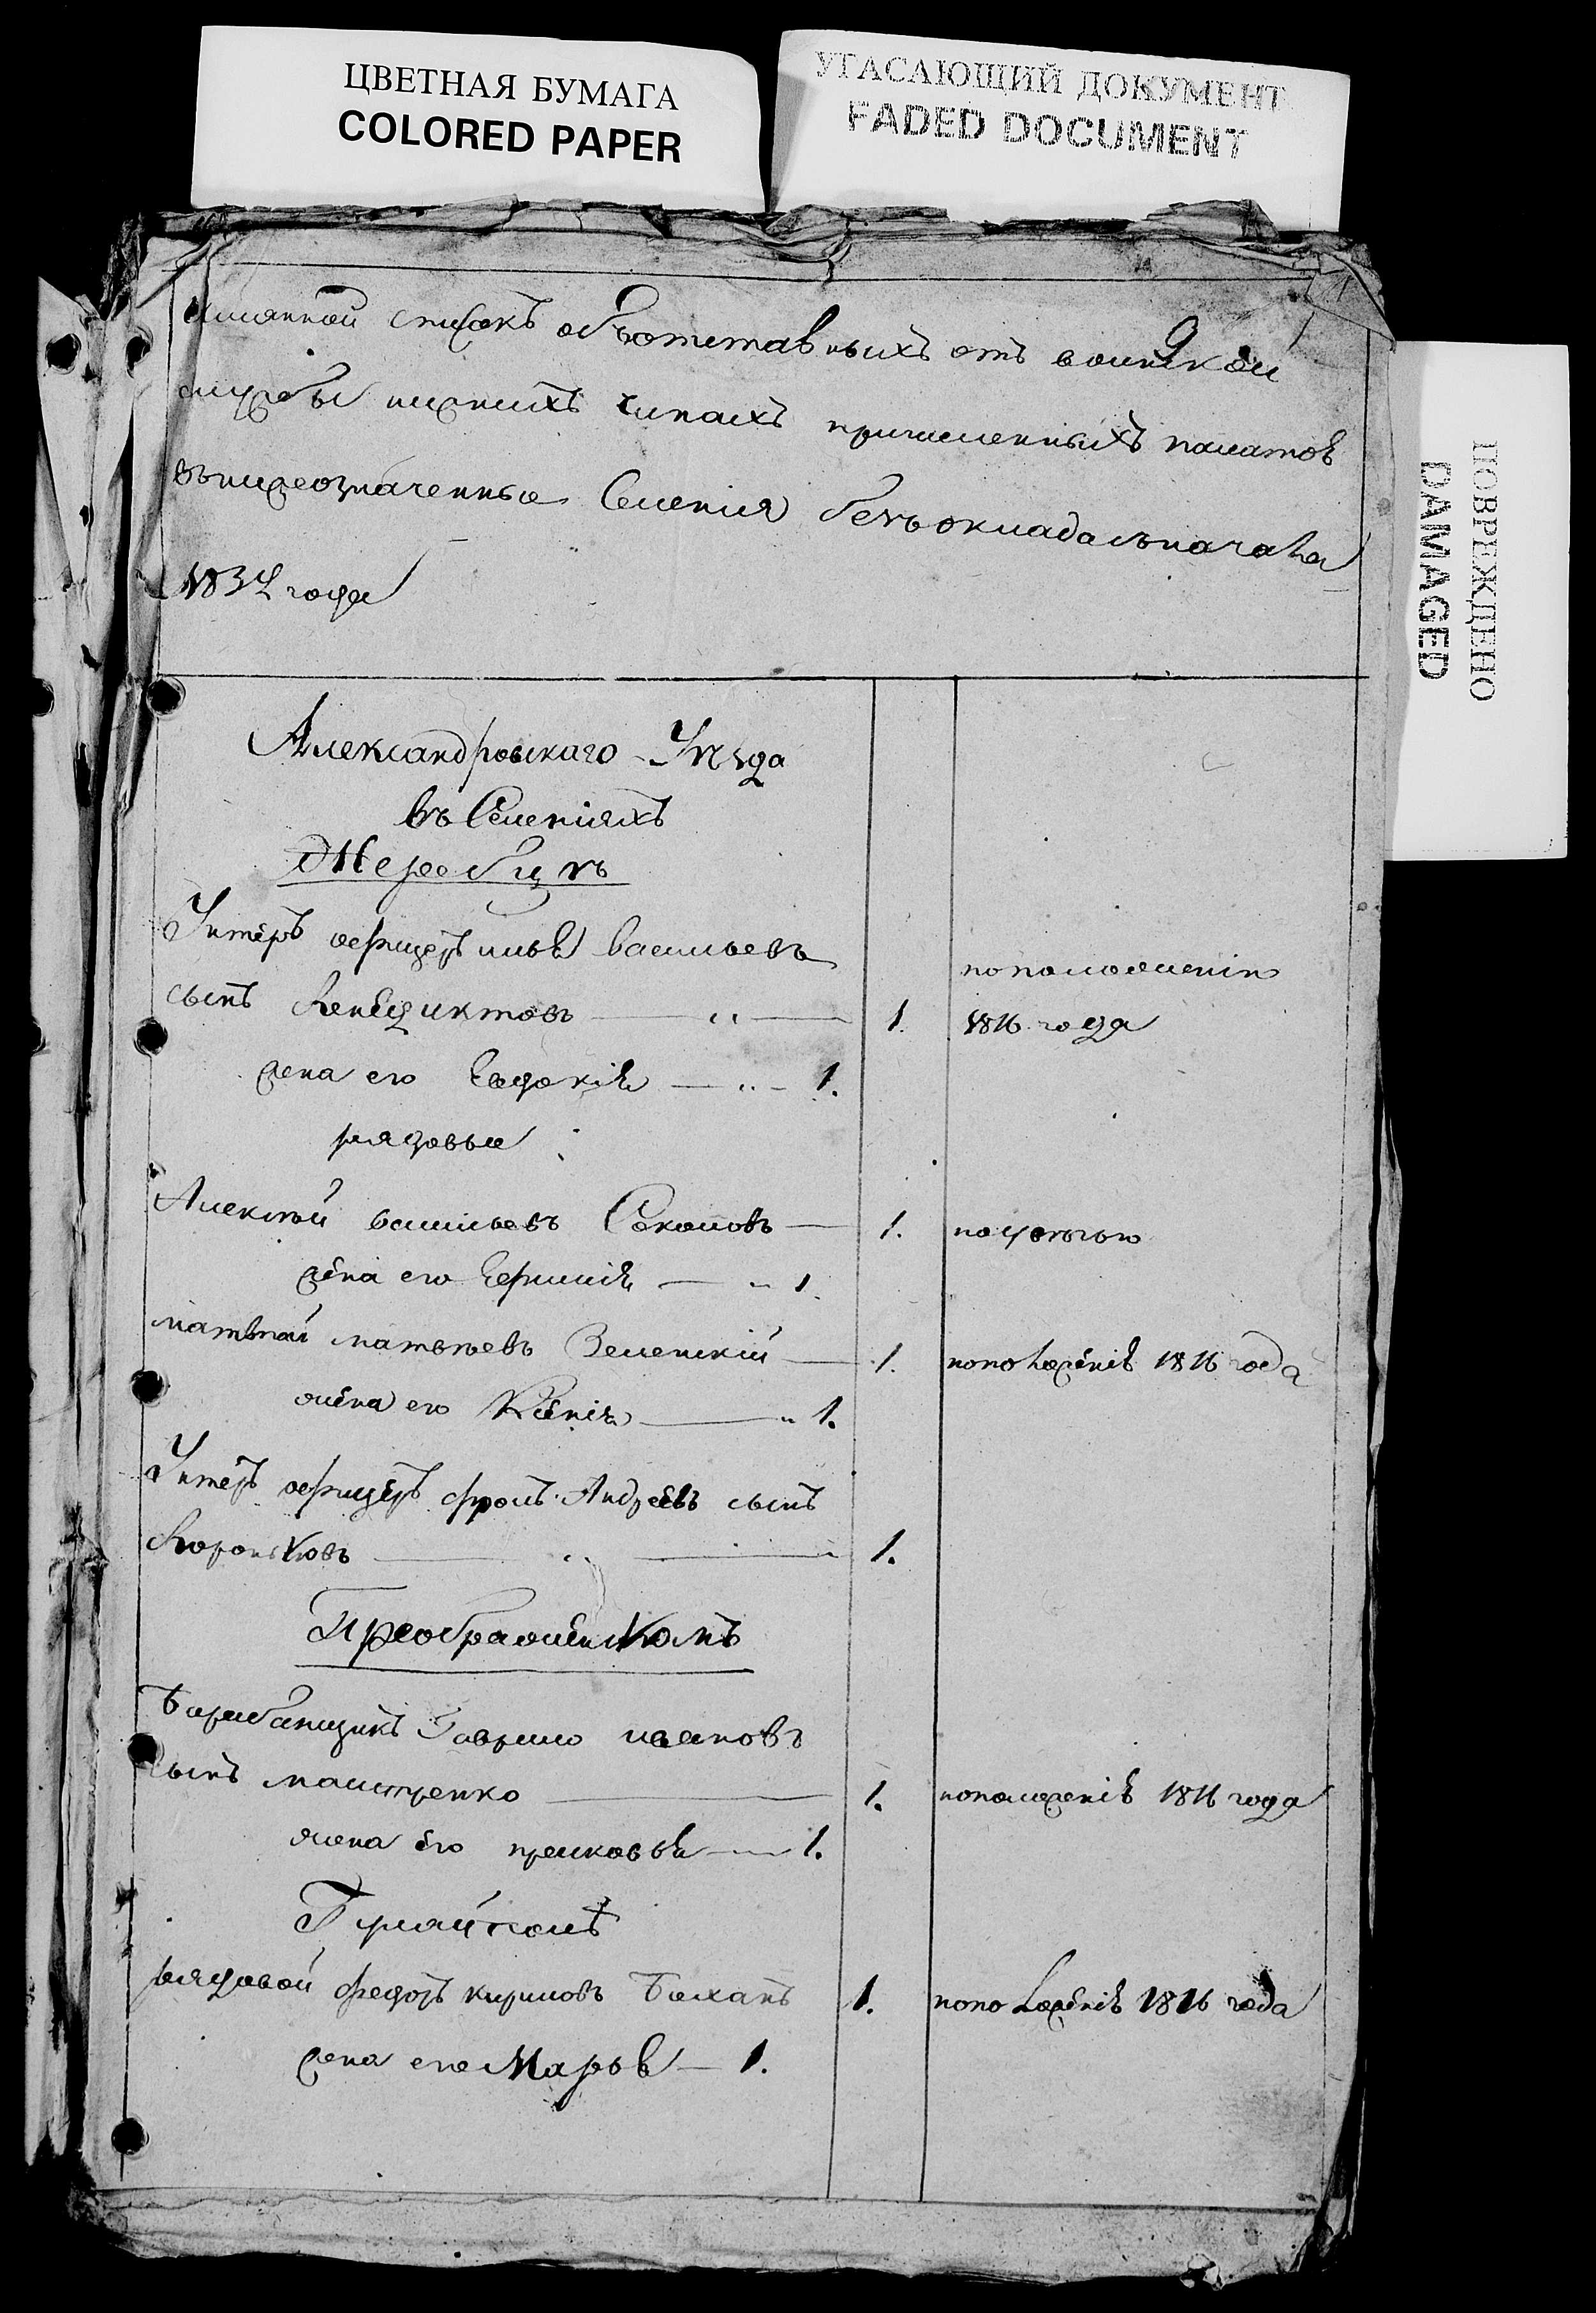 ЦВЕТНАЯ БУМАГА
COLORED PAPER
УГАСАЮЩИЙ ДОКУМЕНТ
FADED DOCUMENT
ПОВРЕЖДЕНО
DAMAGED
имянной списокъ объотставныхъ отъ воинской
службы нижнихъ чинахъ причисленныхъ палатов
вънижеозначенные Селения безъ оклада съначала
1834 года
Александровскаго Уѣзда
въ Селенияхъ
Жеребцѣ
Унтеръ офицеръ васильевъ
сынъ Венедиктовъ 1.
по положению
1816 года
жена его Евдокия 1.
рядовые
Алексѣй васильевъ Соколовъ 1.
жена его 1.
матвѣй матвѣевъ Зеленский 1. поположения 1816 года
жена его Ксения 1.
Унтеръ офицеръ фролъ Андреевъ сынъ
1.
Преображенкомъ
Барабанщикъ Гаврило ивановъ
сынъ 1. поположения 1816 года
жена его прасковья 1.
Гуляйполѣ
рядовой федоръ кириловъ 1. поположения 1816 года
жена его Марья 1.